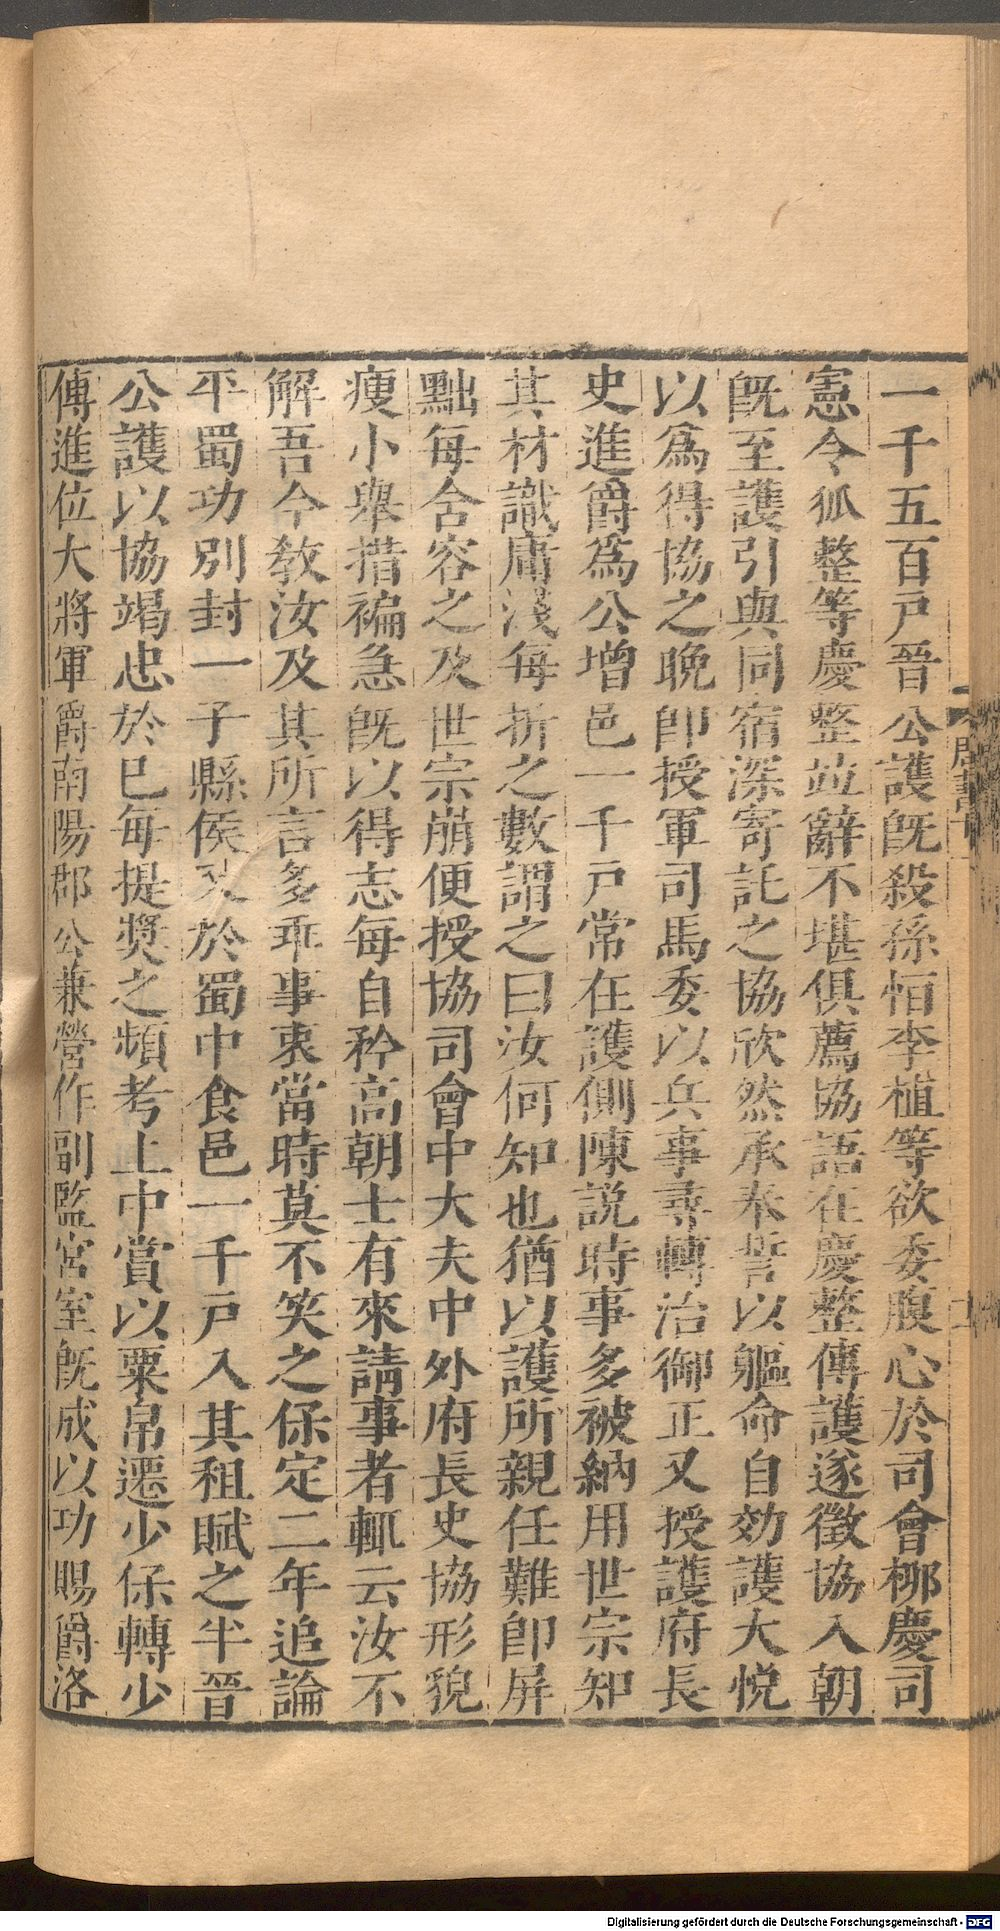 一千五百戸晉公護旣殺孫恒李植等欲委腹心於司會柳慶司
憲令狐整等慶整並辭不堪俱薦協語在慶整傳護遂徵協入朝
旣至護引與同宿深寄託之協欣然承奉誓以軀命自効護大悅
以爲得協之晚卽授軍司馬委以兵事尋轉治御正又授護府長
史進爵爲公增邑一千戸常在護側陳說時事多被納用世宗知
其材識庸淺每折之數謂之曰汝何知也猶以護所親任難卽屏
黜每含容之及世宗崩便授協司會中大夫中外府長史協形貌
瘦小舉措褊急旣以得志每自矜高朝士有來請事者輒云汝不
解吾今敎汝及其所言多乖事衷當時莫不笑之保定二年追論
平蜀功別封一子縣侯又於蜀中食邑一千戸入其租賦之半晉
公護以協竭忠於已每提獎之頻考上中賞以粟帛遷少保轉少
傅進位大將軍爵南陽郡公兼營作副監宮室旣成以功賜爵洛
周書十一
Digitalisierung gefördert durch die Deutsche Forschungsgemeinschaft - DFG